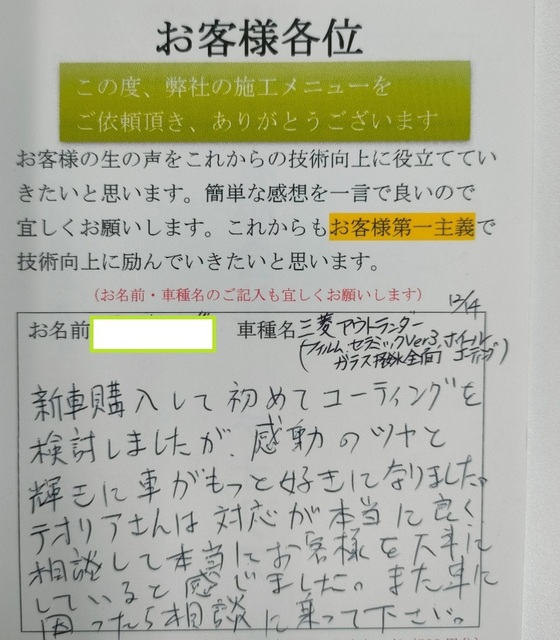 お客様各位
この度、弊社の施工メニューを
ご依頼頂き、ありがとうございます
お客様の生の声をこれからの技術向上に役立ててい
きたいと思います。簡単な感想を一言で良いので
宜しくお願いします。これからもお客様第一主義で
技術向上に励んでいきたいと思います。
(お名前・車種名のご記入も宜しくお願いします)
12/14
お名前 車種名 三菱アウトランダー
(フィルム、セラミックVer3、ホイール
ガラス撥水全面 コーティング)
新車購入して初めてコーティングを
検討しましたが、感動のツヤと
輝きに車がもっと好きになりました。
テオリアさんは対応が本当に良く
相談して本当にお客様を大事に
していると感じました。また車に
困ったら相談に乗って下さい。